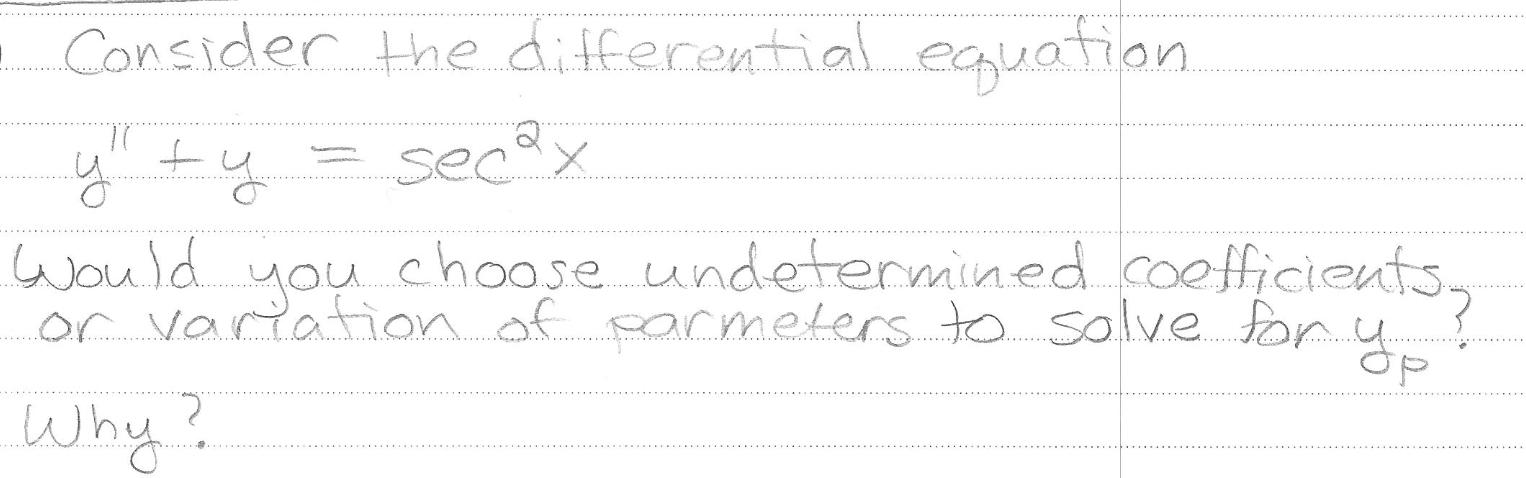 Consider the differential equation
y" + y = sec²x
Would you choose undetermined coefficients,
or variation of parmeters to solve for yₚ?
Why?